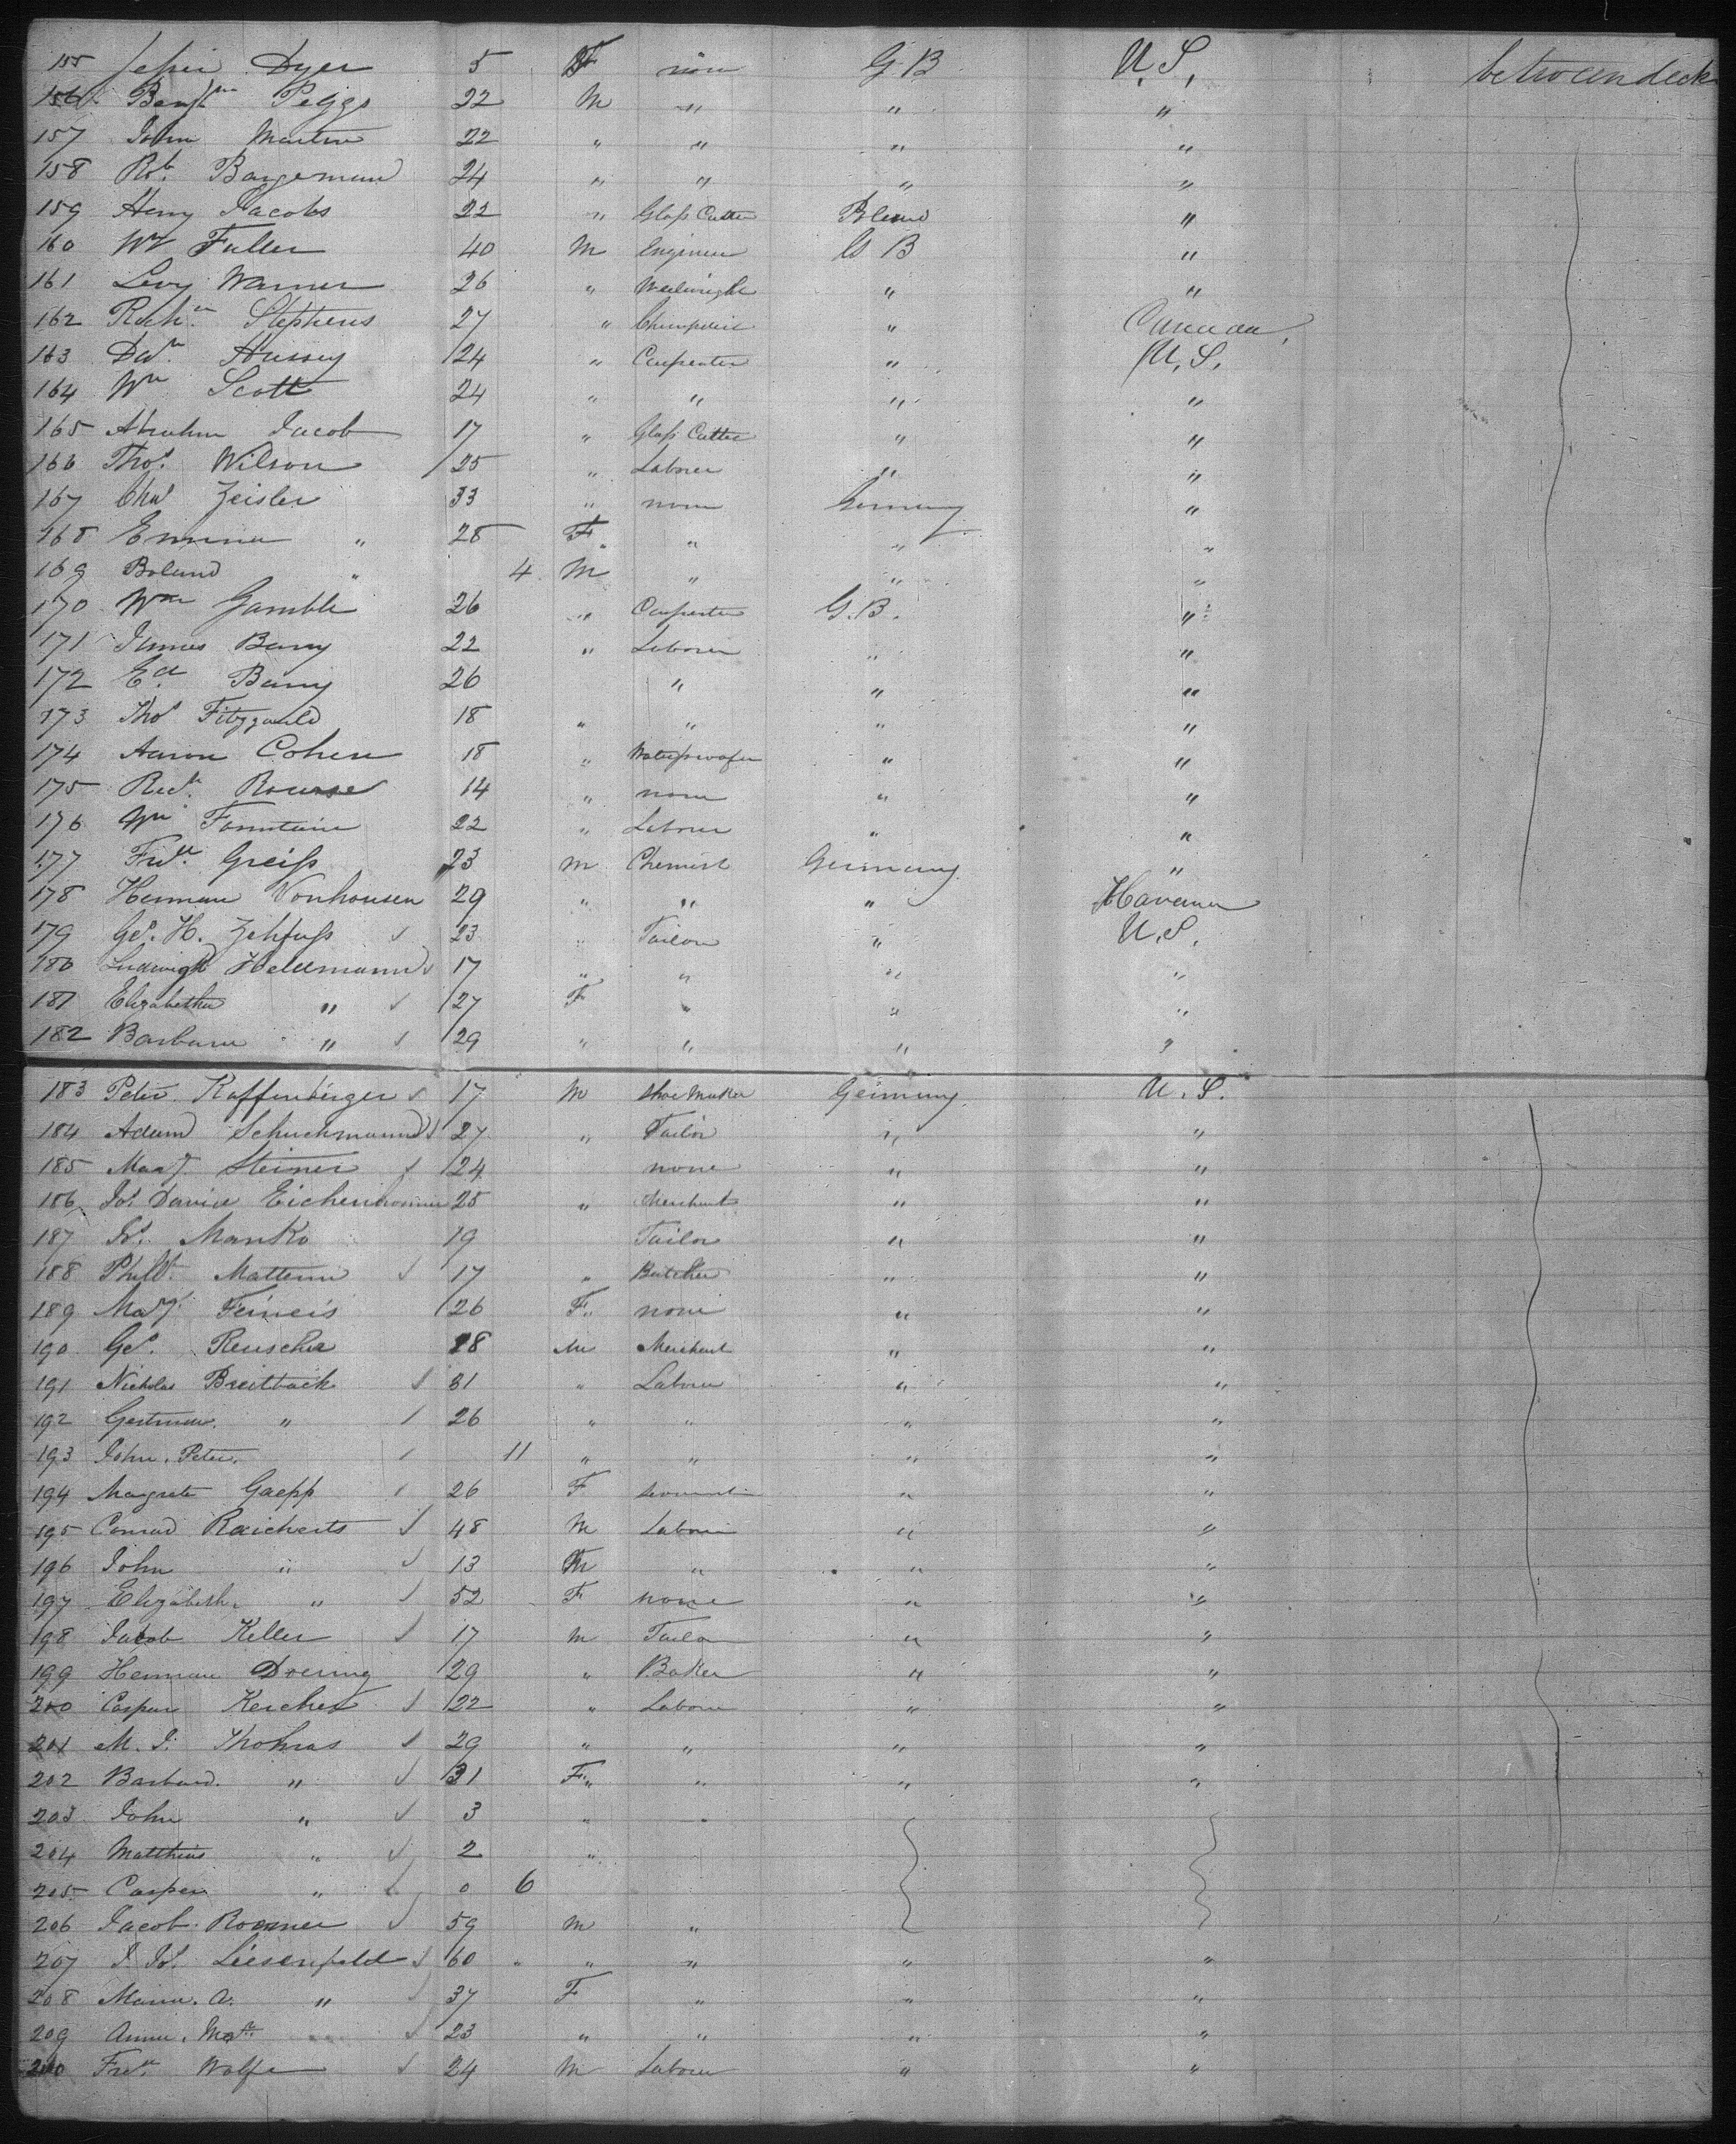 155 Jessie Dyer 5 F none G.B. U.S. between deck
156 Benjn Peggs 22 M " " "
157 John Martin 22 " " " "
158 Rot. Bargeman 24 " " " "
159 Heny Jacobs 22 " Glass Cutter "
160 Wm Fuller 40 M Engineer G B "
161 Levy Warner 26 " " "
162 Richd Stephens 27 " " Canada,
163 Hussey 24 " Carpenter " U.S.
164 Wm Scott 24 " " " "
165 Abraham Jacob 17 " Glass Cutter " "
166 Thos. Wilson 25 " Laborer " "
167 Chas Zeisler 33 " none Germany "
168 Emma " 28 F. " " "
169 Boland " 4 M " " "
170 Wm Gamble 26 " Carpenter G.B. "
171 James Barry 22 " Laborer " "
172 Ed. Barry 26 " " "
173 Thos Fitzgerald 18 " " " "
174 Aaron Cohen 18 " Waterproofer " "
175 Rourse 14 " none " "
176 Wm Fountain 22 " Laborer " "
177 Fredk Greiss 23 M Chemist Germany "
178 Herman Vonhousen 29 " " " Havana
179 Geo. H. Zehfuss 23 " Tailor " U.S.
180 Ludwigh Heldmann 17 " " " "
181 Elizabetha " 27 F " " "
182 Barbara " 29 " " " "
183 Peter Kaffenberger 17 M Shoe Maker Germany U.S.
184 Adam Schuchmann 27 " Tailor " "
185 Steiner 24 none " "
186 Jos David 25 " Merchant " "
187 Manko 19 Tailor " "
188 Mattern 17 " Butcher " "
189 Marg. Feineis 26 F " none " "
190 Geo. Reuscher 28 M Merchant " "
191 Nicholas Breitback 31 " Laborer " "
192 " 26 " " " "
193 John. Peter. 11 " " " "
194 Magreta Gaepp 26 F servant " "
195 Conrad Raicherts 48 M Laborer " "
196 John " 13 M " " "
197 Elizabeth. " 52 F none " "
198 Jacob Keller 17 M Tailor " "
199 Herman Doering 29 " Baker " "
200 Caspar Kercher 22 " Laborer " "
201 M. J. Thomas 29 " " " "
202 Barbara. " 31 F " " " "
203 John " 3 " "
204 Matthias " 2 "
205 Casper " 0 6
206 Jacob Roemer 59 M "
207 J Jos. Liesenfeld 60 " " " " "
208 Maria. A. " 37 F " " "
209 Anna. 23 " " " "
200 Fredk. Wolfe 24 M Laborer " "